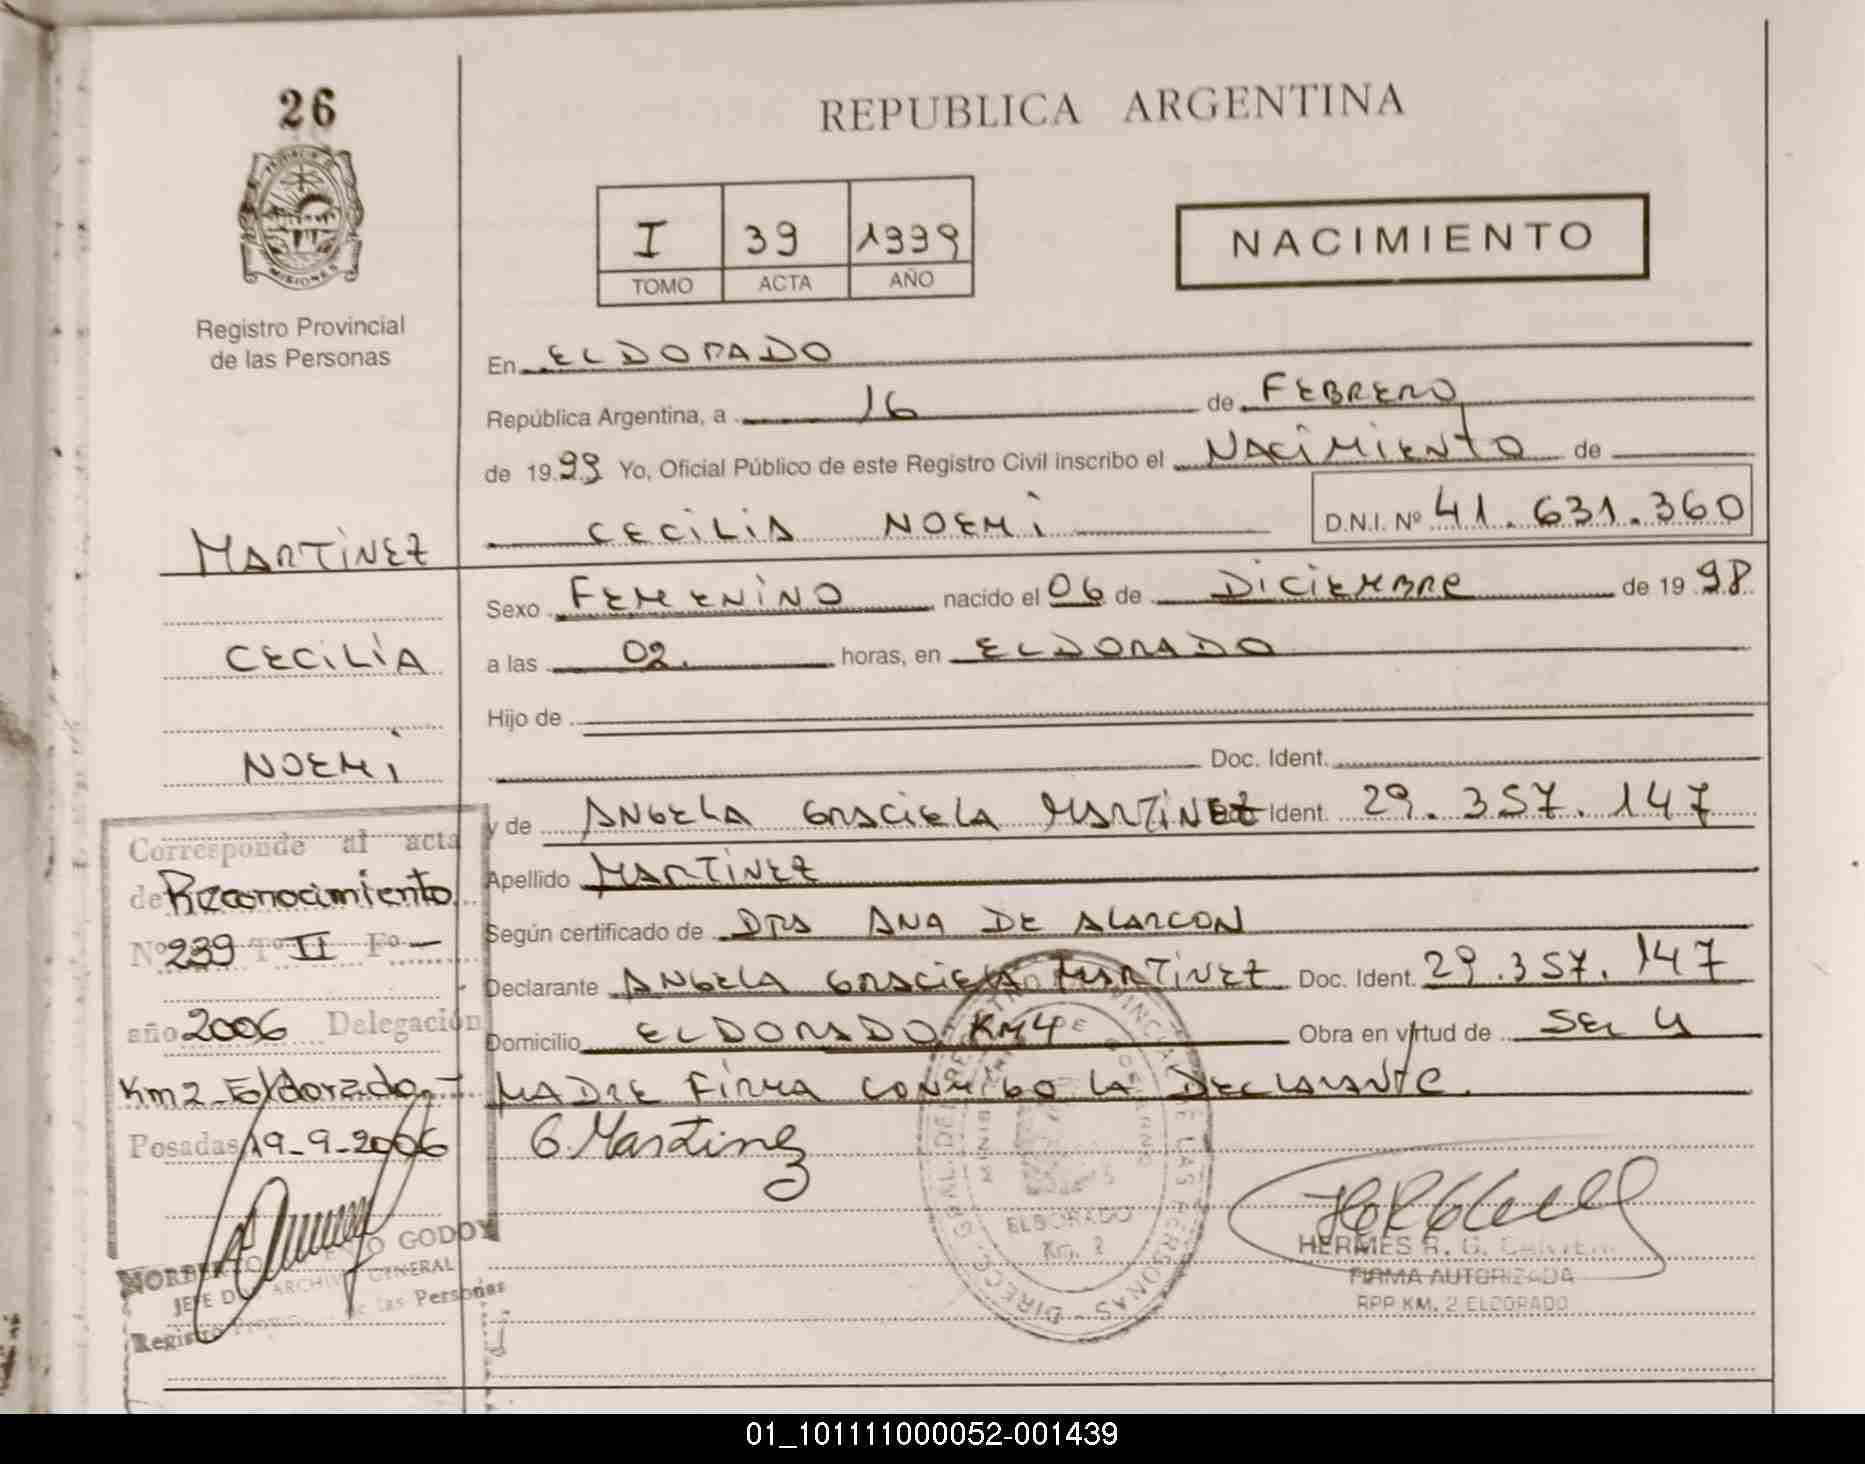 26
REPUBLICA ARGENTINA
MISIONES
Registro Provincial
de las Personas
I 39 1999
TOMO ACTA AÑO
NACIMIENTO
En ELDORADO
República Argentina, a 16 de FEBRERO
de 1999 Yo, Oficial Público de este Registro Civil inscribo el NACIMIENTO de
CECILIA NOEMI D.N.I. Nº 41.631.360
MARTINEZ
CECILIA
NOEMI
Sexo FEMENINO nacido el 06 de DICIEMBRE de 1998
a las 02 horas, en ELDORADO
Hijo de
Doc. Ident.
y de ANGELA GRACIELA MARTINEZ Ident. 29.357.147
Apellido MARTINEZ
Según certificado de DRA ANA DE ALARCON
Declarante ANGELA GRACIELA MARTINEZ Doc. Ident. 29.357.147
Domicilio ELDORADO KM4 Obra en virtud de SER LA
MADRE FIRMA CONMIGO LA DECLARANTE.
G. Martinez
Corresponde al acta
de Reconocimiento
Nº 239 Tº II Fº —
año 2006 Delegación
Km2 Eldorado.-
Posadas, 19-9-2006
NORBERTO GODOY
JEFE ARCHIVO GENERAL
de las Personas
DE LAS PERSONAS
ELDORADO
Km. 2
HERMES R. G.
FIRMA AUTORIZADA
RPP KM. 2 ELDORADO
01_101111000052-001439